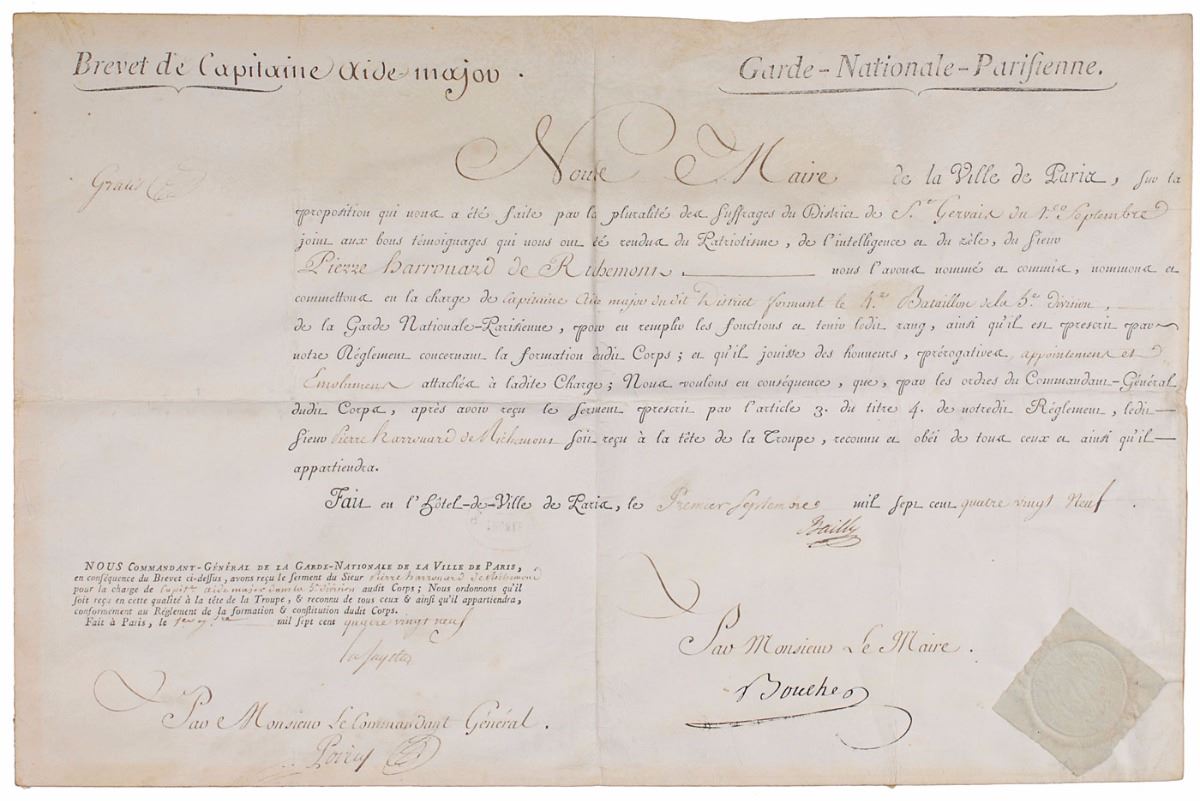 Brevet de Capitaine aide-major.
Garde-Nationale-Parisienne.
Gratis
Nous Maire de la Ville de Paris, sur la
proposition qui nous a été faite par la pluralité des suffrages du District de St. Gervais du 1.er Septembre
joint aux bons témoignages qui nous ont été rendus du Patriotisme, de l'intelligence et du zèle, du sieur
Pierre harrouard de Richemont nous l'avons nommé et commis, nommons et
commettons en la charge de Capitaine Aide major du dit District formant le 4.e Bataillon de la 5.e division,
de la Garde Nationale-Parisienne, pour en remplir les fonctions et tenir ledit rang, ainsi qu'il est prescrit par
notre Réglement concernant la formation dudit Corps; et qu'il jouisse des honneurs, prérogatives, appointemens et
Emolumens attachés à ladite Charge; Nous voulons en conséquence, que, par les ordres du Commandant-Général
dudit Corps, après avoir reçu le serment prescrit par l'article 3. du titre 4. de notredit Réglement, ledit
sieur Pierre harrouard de Richemont soit reçu à la tête de la Troupe, reconnu et obéi de tous ceux et ainsi qu'il
appartiendra.
Fait en l'Hôtel-de-Ville de Paris, le Premier Septembre mil sept cent quatre vingt Neuf.
Bailly
NOUS COMMANDANT-GÉNÉRAL DE LA GARDE-NATIONALE DE LA VILLE DE PARIS,
en conséquence du Brevet ci-dessus, avons reçu le serment du Sieur Pierre harrouard de Richemond
pour la charge de Capit.ne Aide major dans la 5.e division audit Corps; Nous ordonnons qu'il
soit reçu en cette qualité à la tête de la Troupe, & reconnu de tous ceux & ainsi qu'il appartiendra,
conformément au Réglement de la formation & constitution dudit Corps.
Fait à Paris, le 1er 7.bre mil sept cent quatre vingt neuf
lafayette
Par Monsieur Le Maire.
Boucher
Par Monsieur Le Commandant Général.